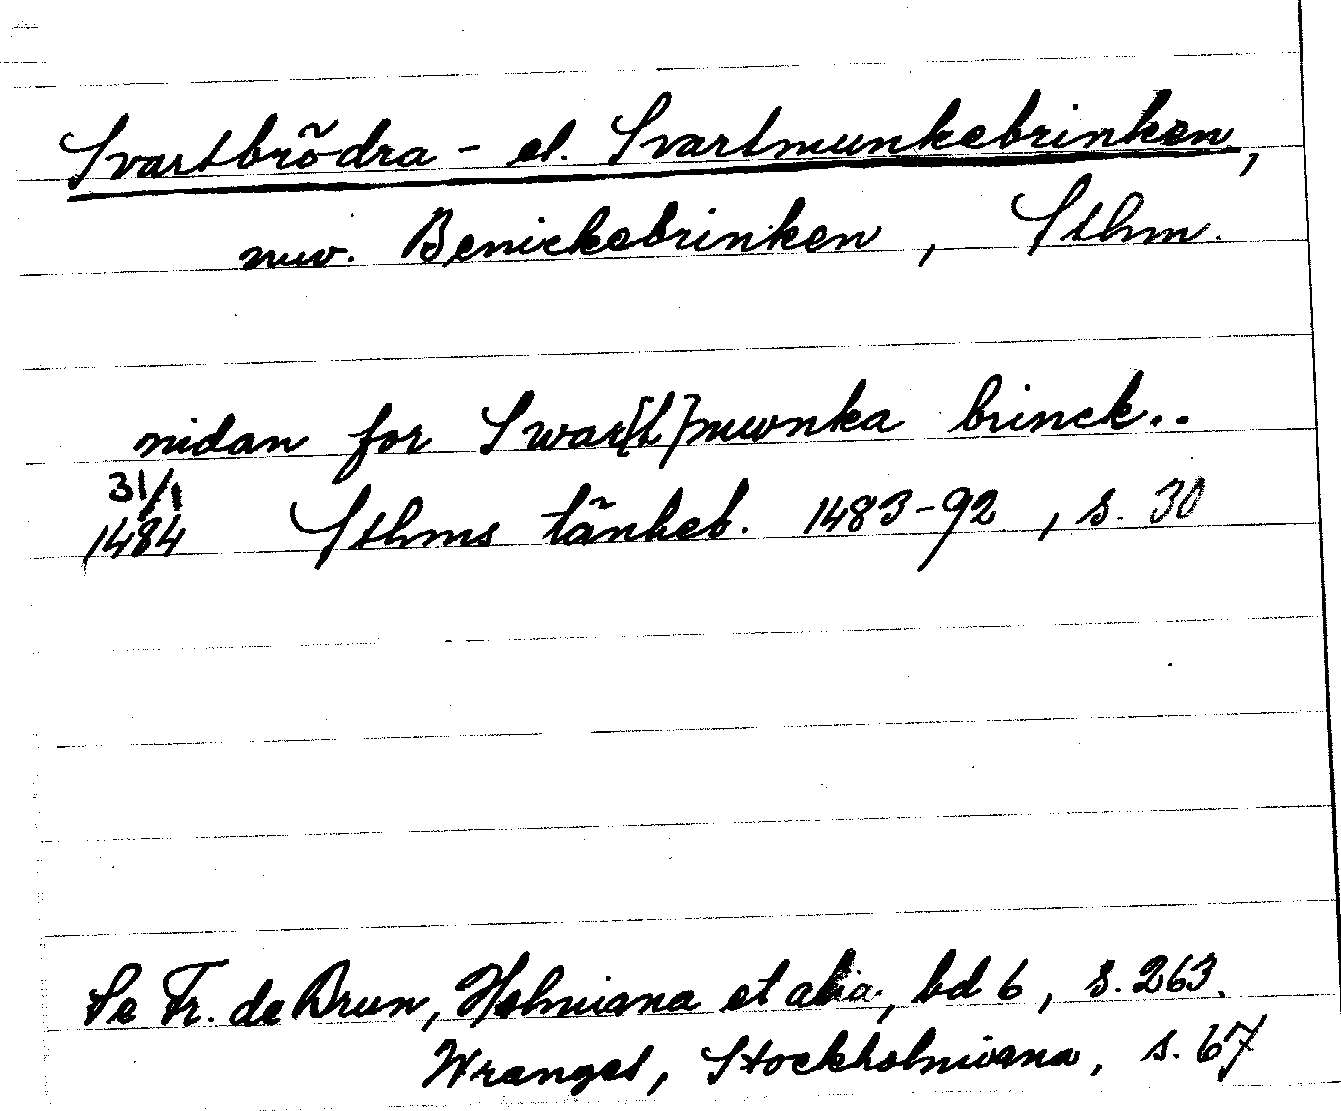 Svartbrödra- el. Svartmunkebrinken,
nuv. Benickebrinken, Sthm.
nidan for Swar[t]mwnka brinck..
31/1
1484 Sthms tänkeb. 1483-92, s. 30
Se Fr. de Brun, Holmiana et alia, bd 6, s. 263.
Wrangel, Stockholmiana, s. 67